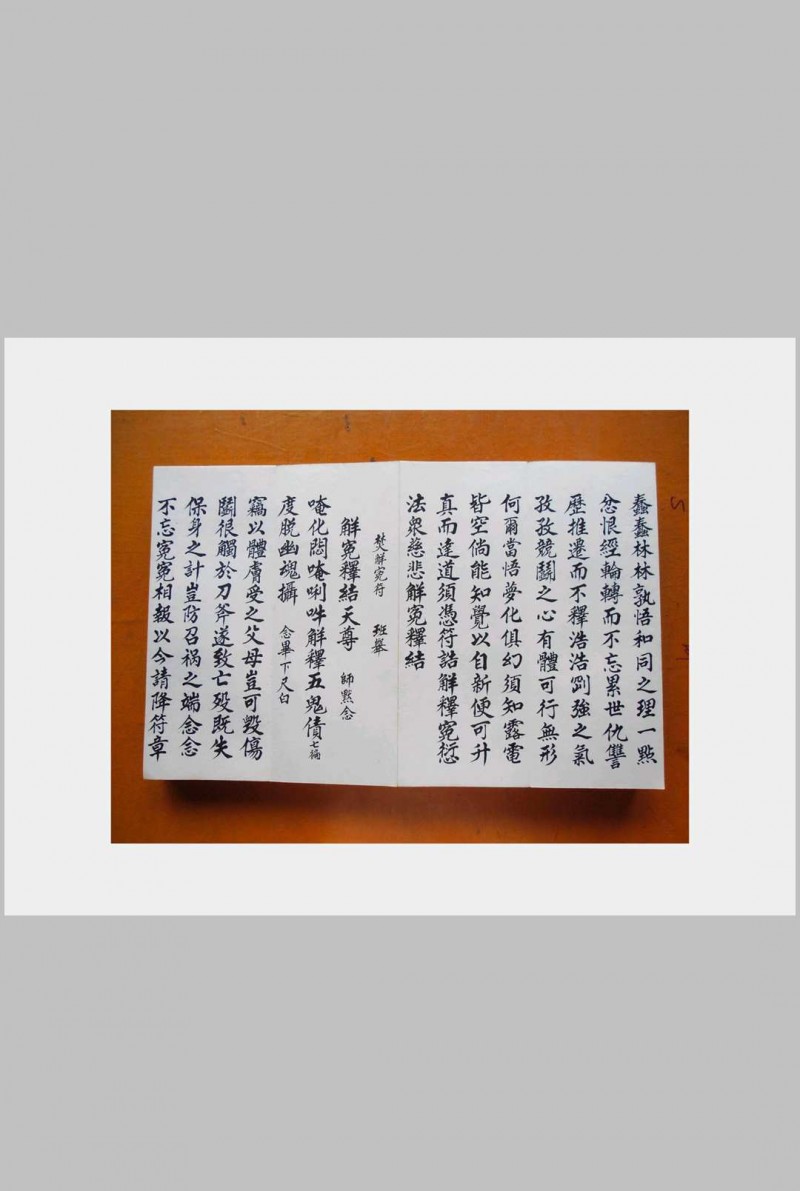 蠢蠢林林孰悟和同之理一點
忿恨經輪轉而不忘累世仇讐
歷推遷而不釋浩浩剛強之氣
孜孜競鬬之心有體可行無形
何爾當悟夢化俱幻須知露電
皆空倘能知覺以自新便可升
真而達道須憑符誥解釋寃愆
法衆慈悲解寃釋結
焚解寃符 班舉
解寃釋結天尊 師默念
唵化閻唵唎吽解釋五鬼債七徧
度脱幽魂攝 念畢下尺白
竊以體膚受之父母豈可毀傷
鬬很觸於刀斧遂致亡殁既失
保身之計豈防召禍之端念念
不忘寃寃相報以今請降符章